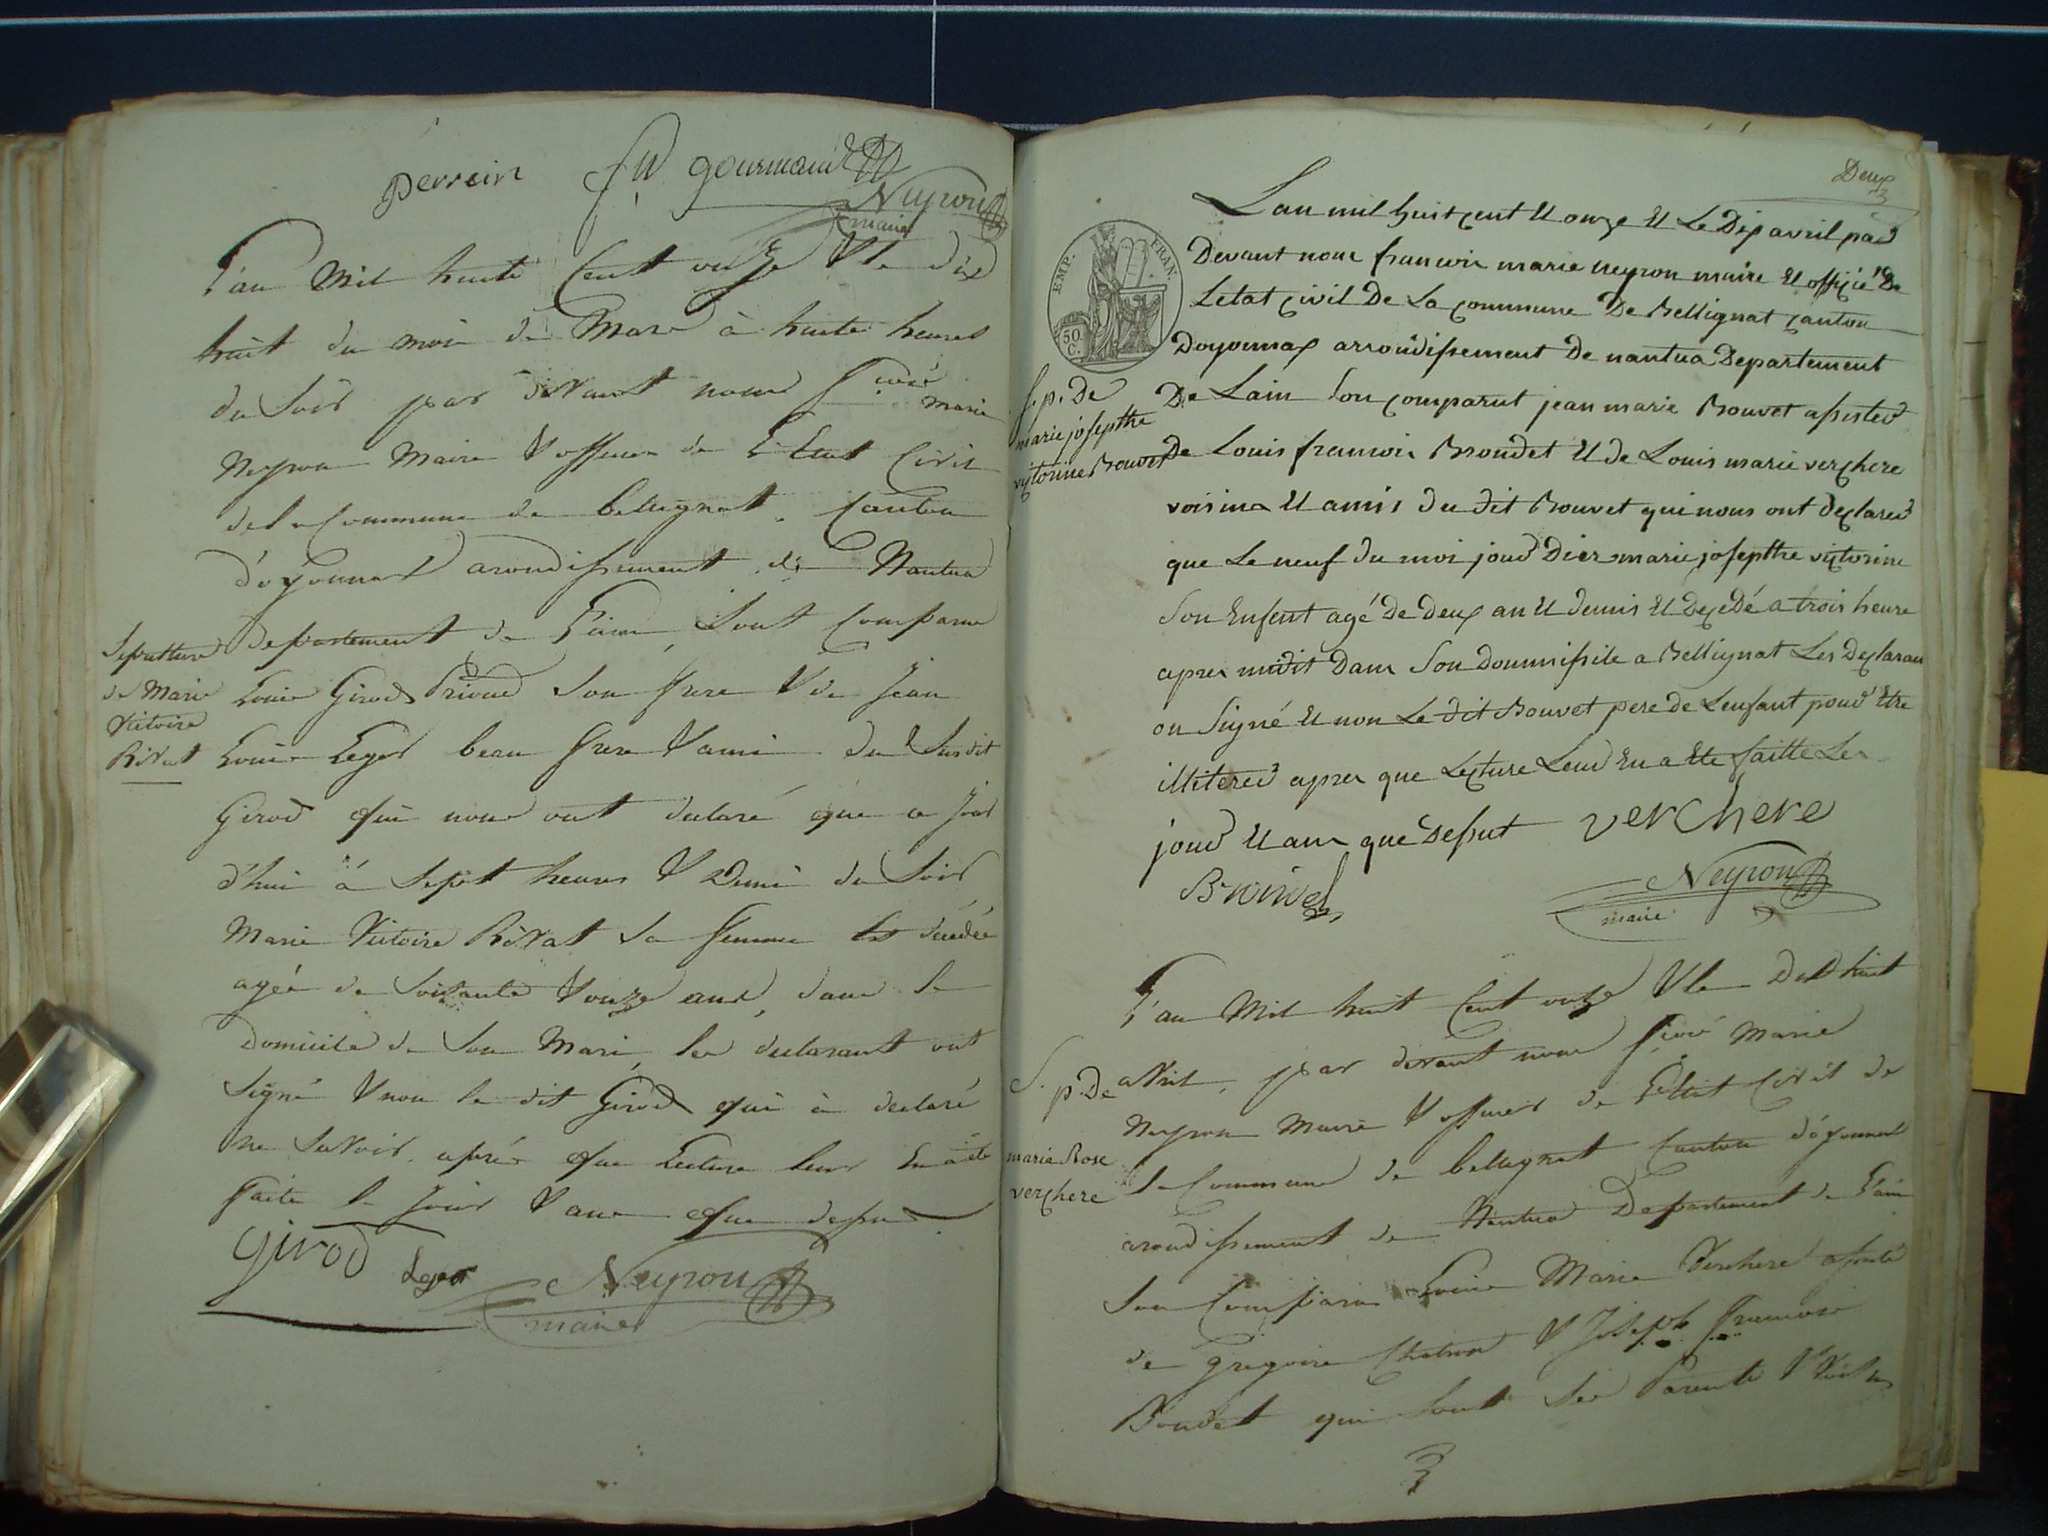 perrein fm gourmand
Neyron
maire
L'an Mil huit Cent onze & le dix
huit du mois de Mars à huite heures
du Soir par devant nous fcois marie
Neyron Maire & officier de L'Etat Civil
de la Commune de bellignat Canton
d'oyonnax arondissement de Nantua
departement de L'ain, Sont Comparu
Sepulture
de Marie
Victoire
Rivat
Louis Girod Son frere & de Jean
Louis Leger beau frere & ami du Susdit
Girod qui nous ont declaré que ce jour
d'hui à Sept heures & Demi du Soir
Marie Victoire Rivat Sa femme Est décédée
agée de Soixante & onze ans, dans le
Domicile de Son Mari, les declarant ont
Signé & non le dit Girod qui à declaré
ne Savoir après que Lecture leur En a été
faite le Jour & an que dessus
Girod Leger Neyron
maire
Deux
Lan mil huit cent et onze et Le Dix avril par
Devant nous francois marie neyron maire et officié De
Letat civil De La commune De Bellignat canton
EMP. FRAN.
50 C.
Doyonnax arroudissement De nantua Departement
De Lain Son comparut jean marie Bouvet assisted
S. p. De
marie josepthe
victorine Bouvet
De Louis francois Brondet et de Louis marie verchere
voisins et amis du dit Bouvet qui nous ont declared
que Le neuf du moi jour Dier marie josepthe victorine
Son Enfant agé De Deux an et Demis et Decedé a trois heure
apres midit Dans Son Doumissile a Bellignat Les Declaran
on Signé et non Le dit Bouvet pere de Lenfant pour Etre
illitered apres que Lecture Leur En a Ete faitte Les
jour et an que Dessut verchere
Neyron
maire
L'an Mil huit Cent onze & le Dix huit
avril, par devant nous fcois Marie
S. p. De
marie Rose
verchere
Neyron Maire & officier de L'Etat Civil de
la Commune de bellignat Canton d'oyonnax
arondissement de Nantua Departement de L'ain
Son Comparu Louis Marie Verchere assisté
de gregoire Chatron & Joseph francois
Boudet qui Sont Ses Parents & Voisins